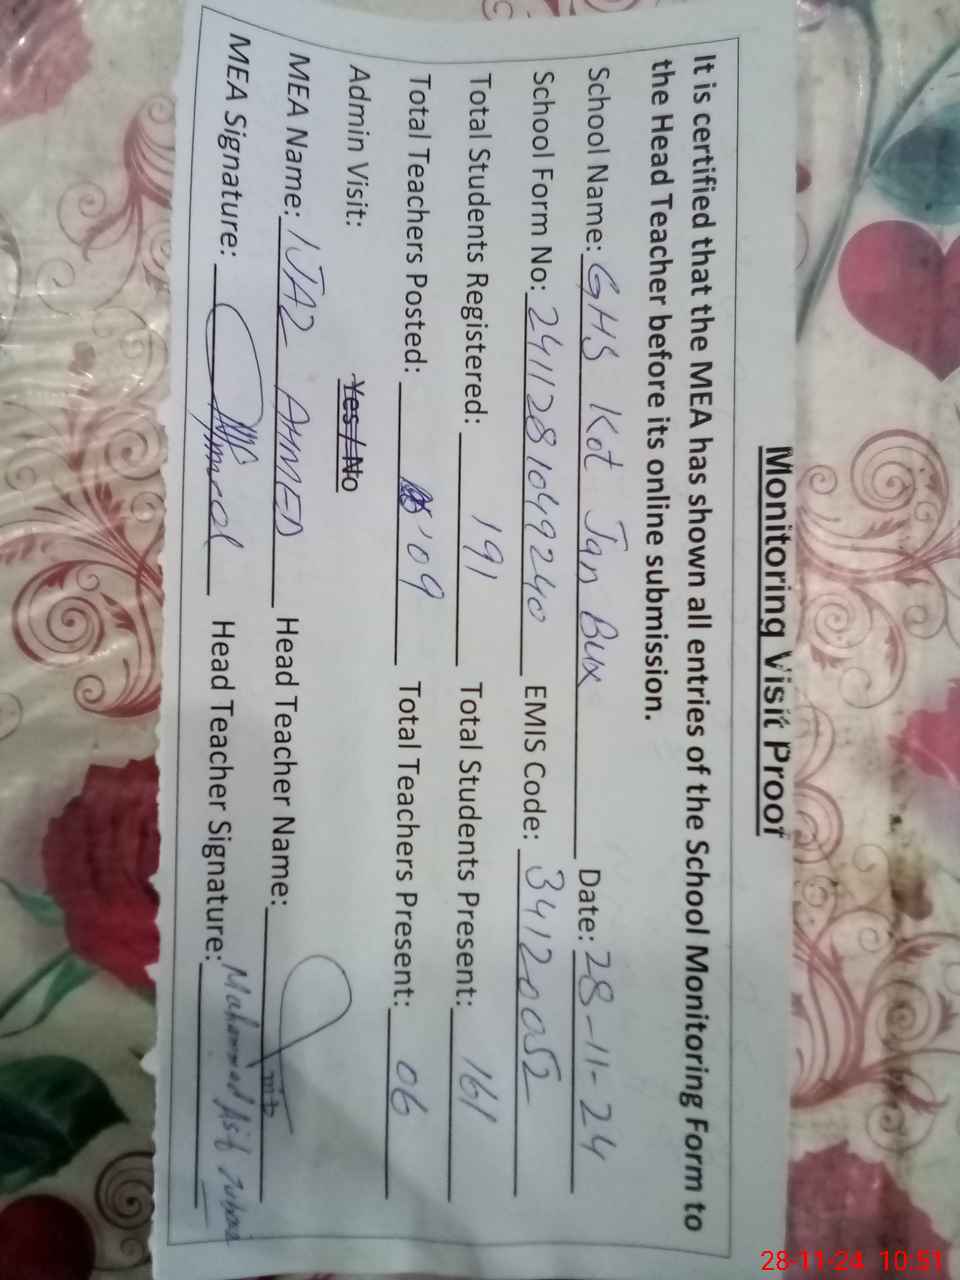 Monitoring Visit Proof
It is certified that the MEA has shown all entries of the School Monitoring Form to
the Head Teacher before its online submission.
School Name: GHS Kot Jan Bux Date: 28-11-24
School Form No: 2411281049240 EMIS Code: 34120052
Total Students Registered: 191 Total Students Present: 161
Total Teachers Posted: 09 Total Teachers Present: 06
Admin Visit: Yes / No
MEA Name: IJAZ AHMED Head Teacher Name:
MEA Signature: Ahmed Head Teacher Signature: Mahammad Asif
28-11-24 10:51